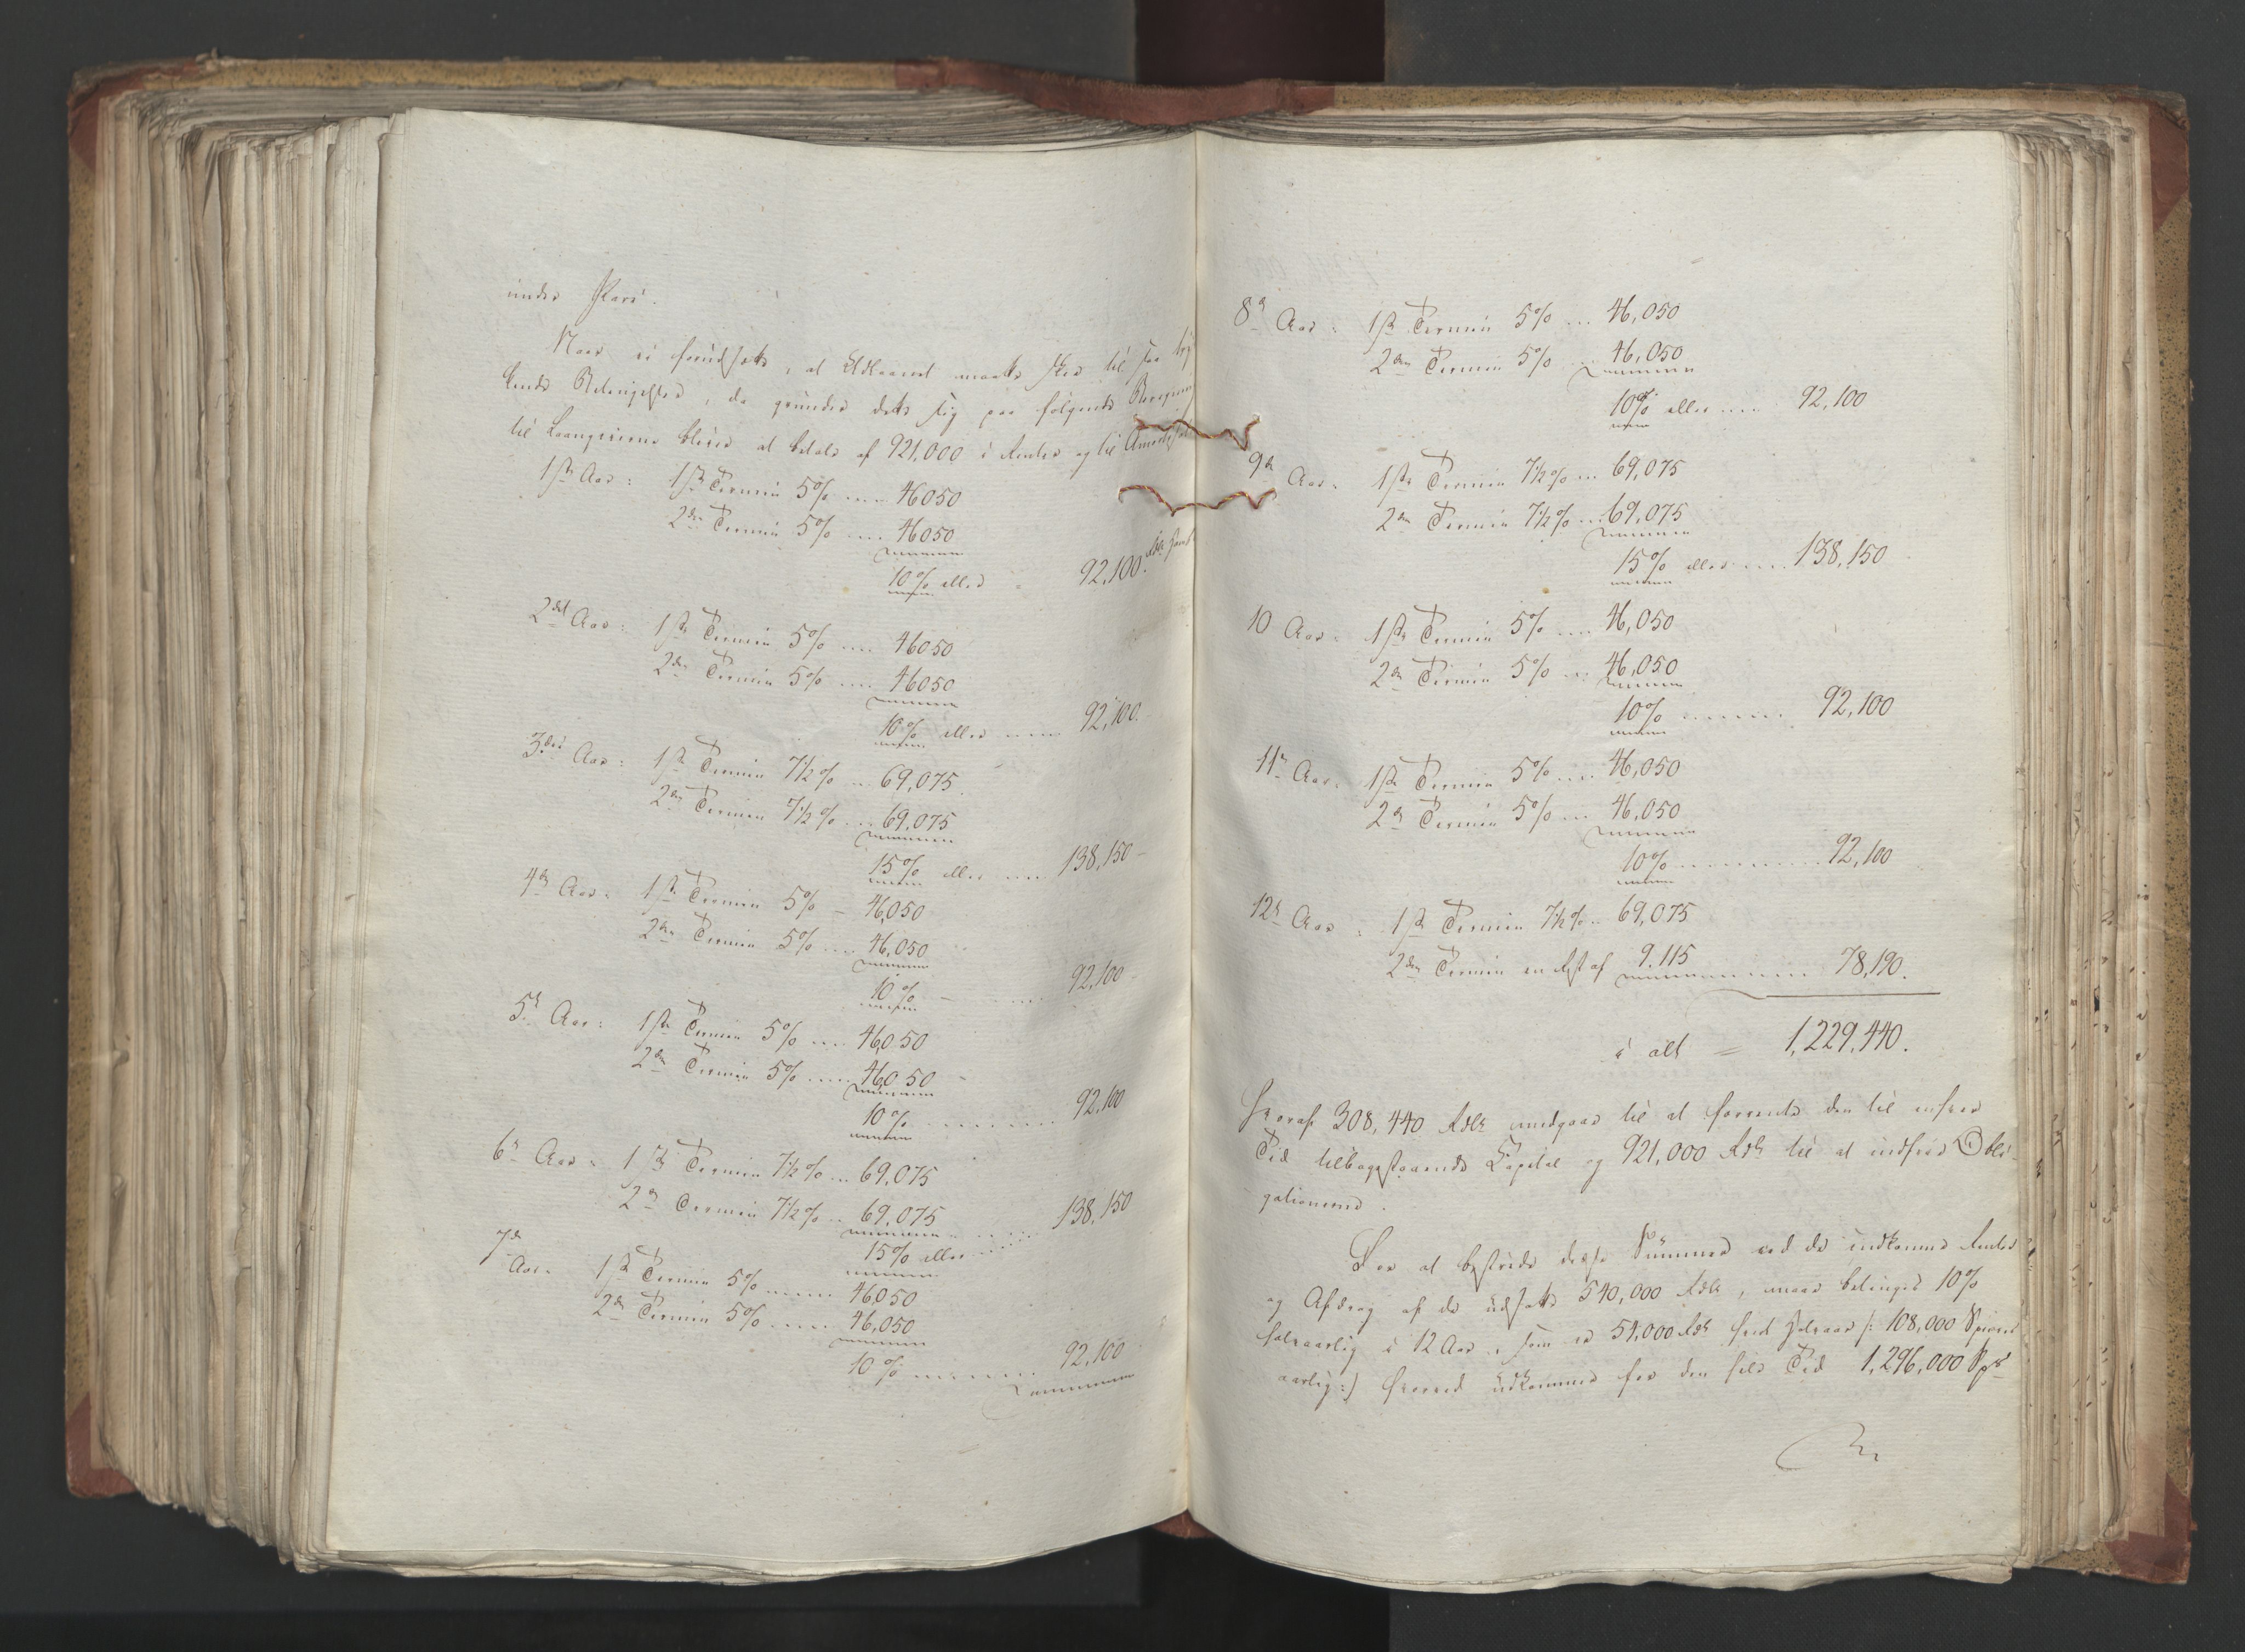 under Pari.
Naar vi forudsætte, at Udlaanet maatte skee til saa try
kende Betingelser, da grunder dette sig paa følgende Beregning
til Laangiverne bliver at betale af 921,000 i Renter og til Amortisation
1ste Aar: 1ste Termin 5% .... 46050
2den Termin 5% .... 46050
10% eller = 92,100. Rdlr
2det Aar: 1ste Termin 5% .... 46050
2den Termin 5% .... 46050
10% eller .... 92,100.
3die Aar: 1ste Termin 7½% ... 69,075.
2den Termin 7½% ... 69,075
15% eller .... 138,150 -
4de Aar: 1ste Termin 5% - 46,050
2den Termin 5% .... 46,050
10% - .... 92,100 -
5te Aar: 1ste Termin 5% .... 46,050
2den Termin 5% .... 46,050 -
10% .......... 92,100
6te Aar: 1ste Termin 7½% ... 69,075
2den Termin 7½% .. 69,075
15% eller ...... 138,150
7de Aar: 1ste Termin 5% ...... 46,050
2den Termin 5% ..... 46,050
10% ......... 92,100
8de Aar: 1ste Termin 5% ... 46,050
2den Termin 5% ... 46,050
10% eller .... 92,100
9de Aar: 1ste Termin 7½% ... 69,075
2den Termin 7½% ... 69,075
15% eller .... 138,150
10 Aar: 1ste Termin 5% .... 46,050
2den Termin 5% ... 46,050
10% ....... 92,100
11te Aar: 1ste Termin 5% .... 46,050
2den Termin 5% ... 46,050
10% .......... 92,100
12te Aar: 1ste Termin 7½% .. 69,075
2den Termin en Rest af 9.115 ........ 78,190.
i alt = 1,229,440.
Hvoraf 308,440 Rdlr medgaar til at forrente den til enhver
Tid tilbagestaaende Capital og 921,000 Rdlr til at indfrie Obli-
gationerne.
For at bestride disse Summer ved de indkomne Renter
og Afdrag af de udsatte 540,000 Rdlr, maae betinges 10%
halvaarlig i 12 Aar, som er 54,000 Rdlr hvert Halvaar /: 108,000 Specier
aarlig :/ hvorved udkommer for den hele Tid 1,296,000 Spr